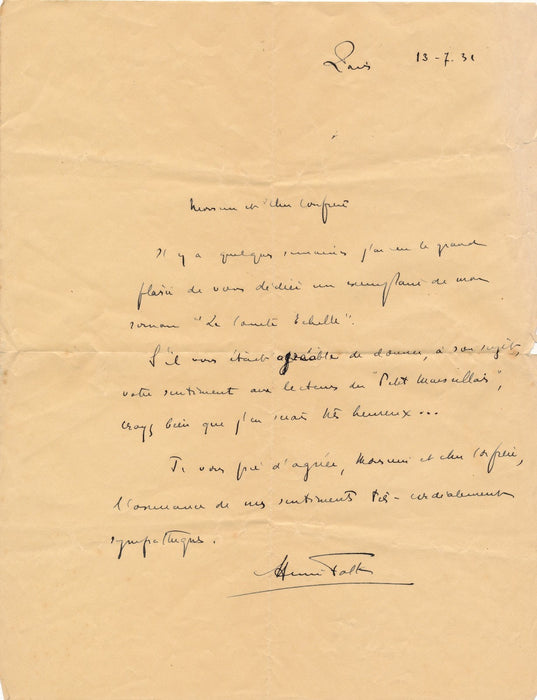 Paris 13-7.31
Monsieur et cher Confrère
Il y a quelques semaines j'ai eu le grand
plaisir de vous dédier un exemplaire de mon
roman "Le Comte Echelle".
S'il vous était agréable de donner, à son sujet,
votre sentiment aux lecteurs du "Petit Marseillais",
croyez bien que j'en serais très heureux...
Je vous prie d'agréer, Monsieur et cher Confrère,
l'assurance de mes sentiments très-cordialement
sympathiques.
Henri Falk